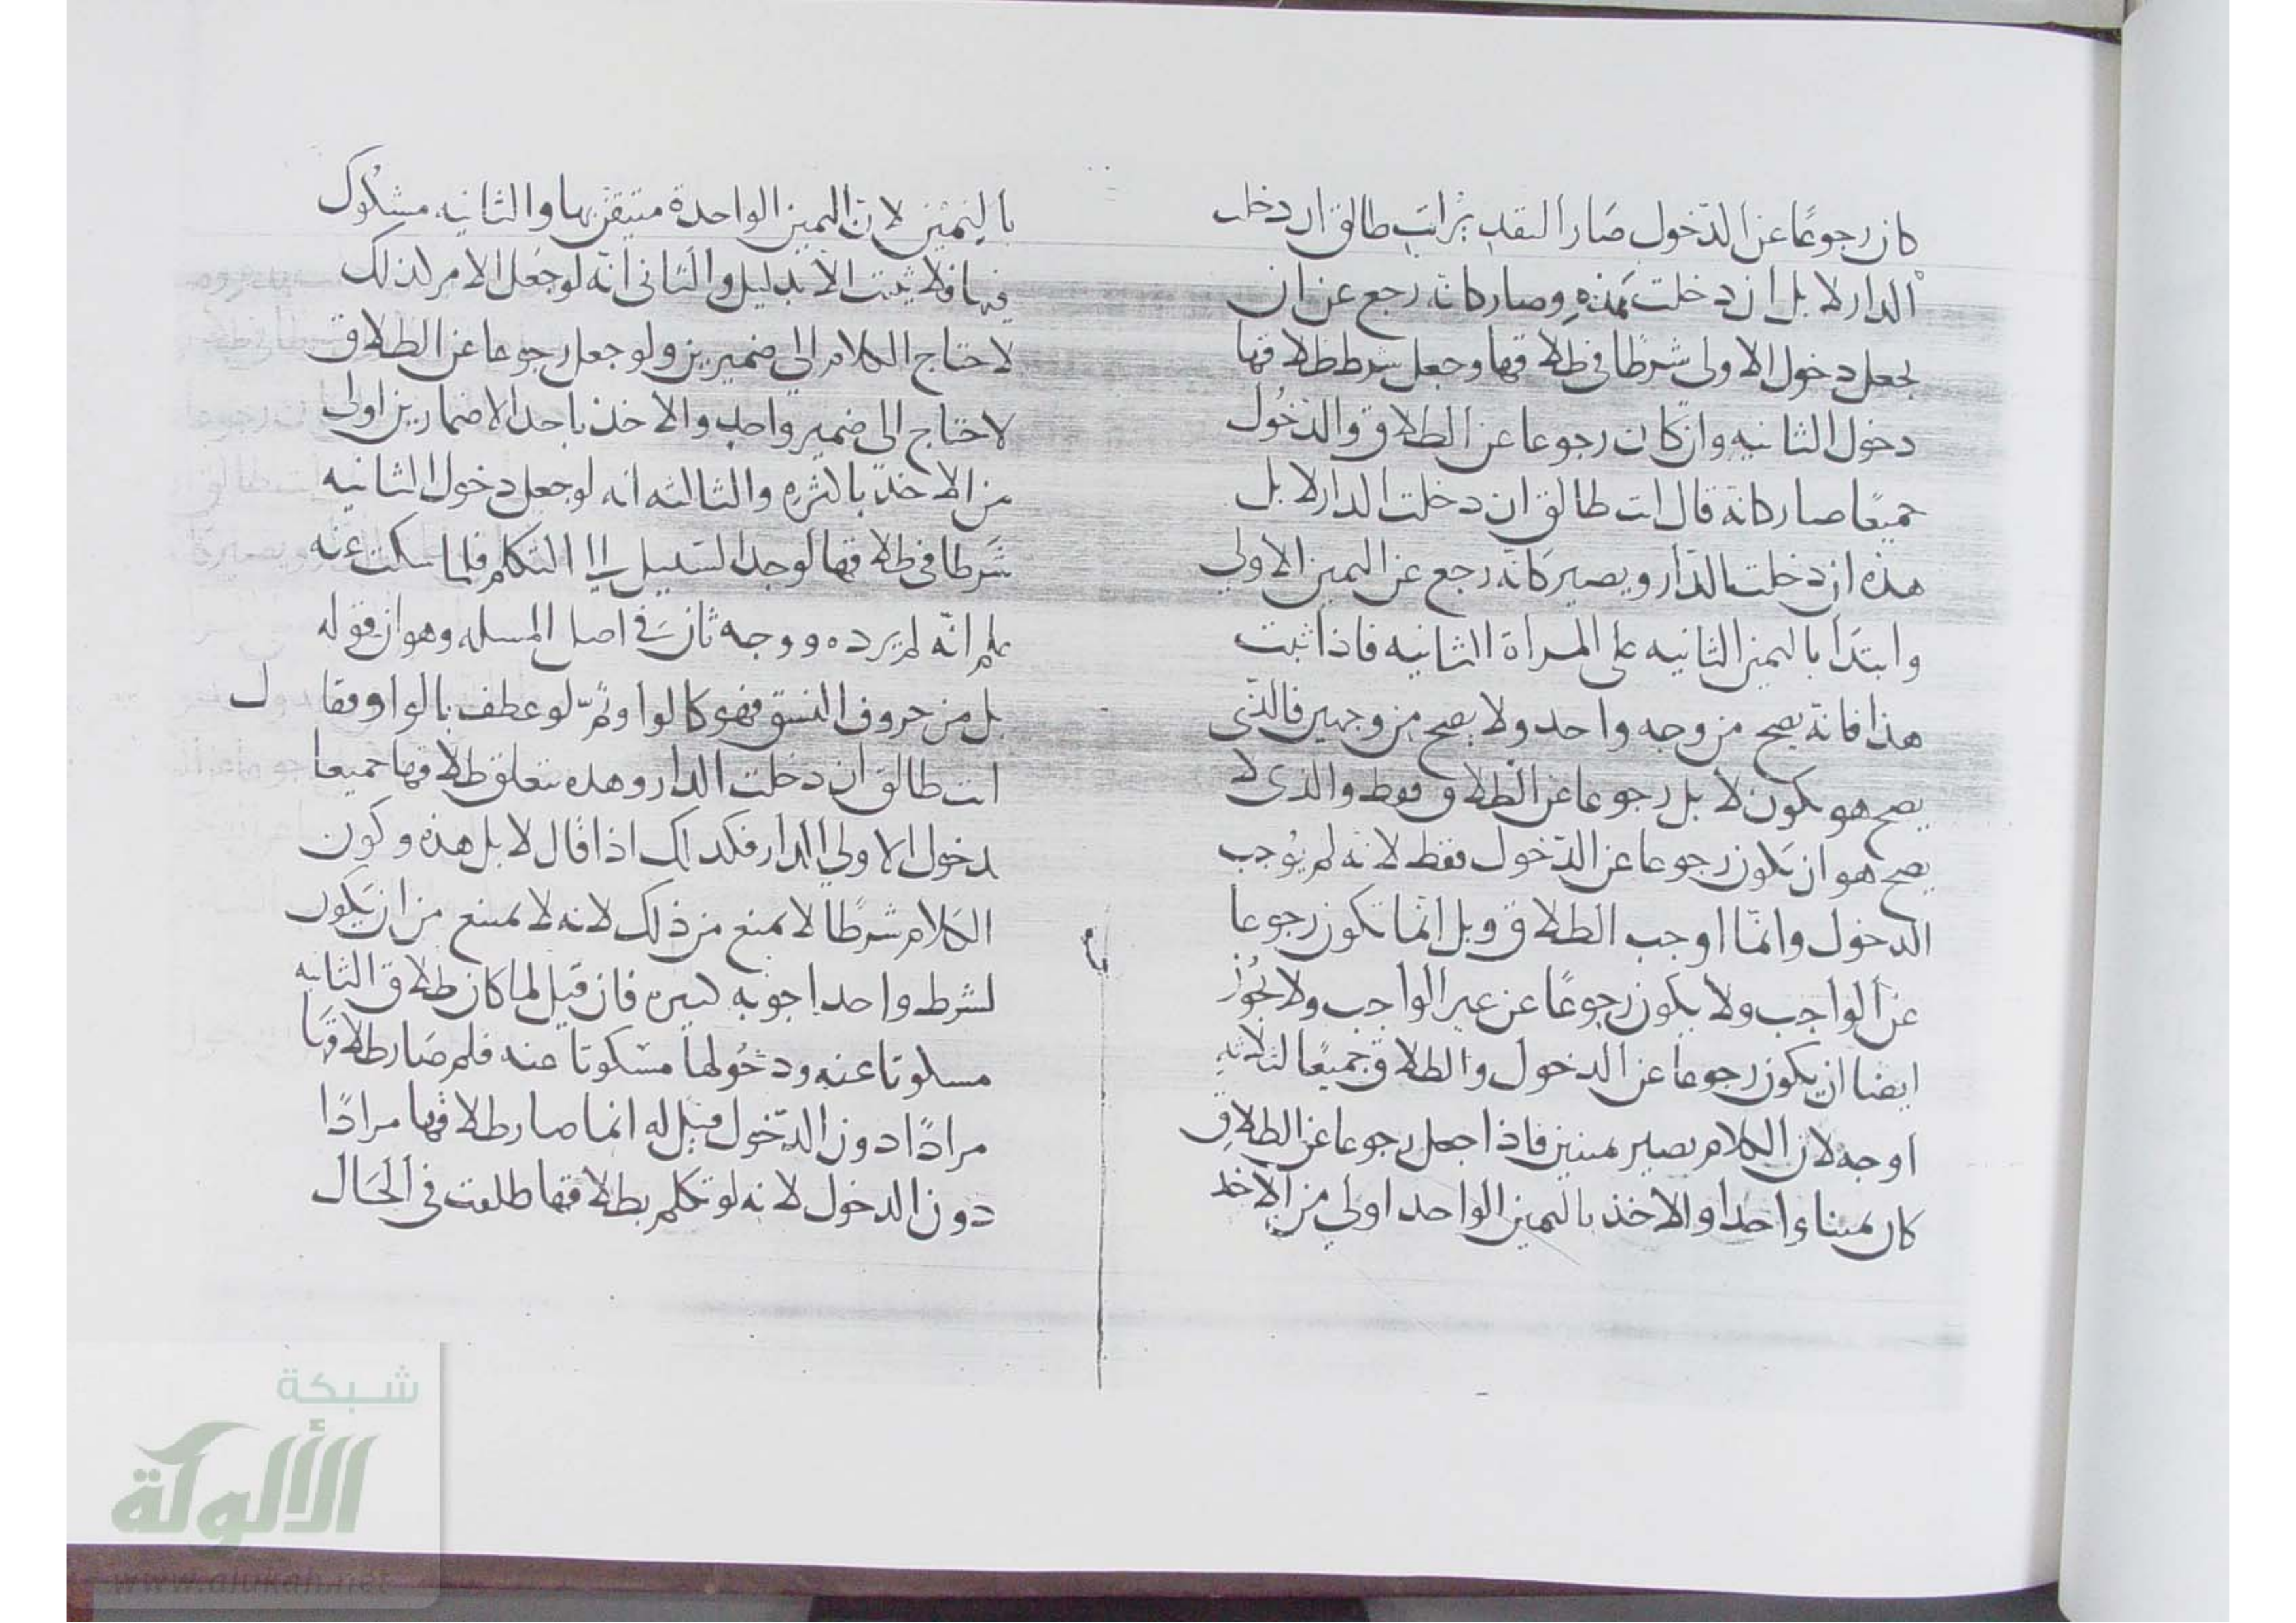 كان رجوعًا عن الدّخول صَار التقدير انتِ طالق ان دخلت
الدار لا بل ان دخلت هذهِ وصار كانه رجع عن ان
يجعل دخول الاولى شرطًا في طلاقها وجعل شرط طلاقها
دخول الثانيه وان كان رجوعا عن الطلاق والدّخُول
جميعًا صار كانه قال انت طالق ان دخلت الدار لا بل
هذه ان دخلت الدّار ويصير كانّه رجع عن اليمين الاولى
وابتدَا باليمين الثانيه على المراة الثانيه فاذا ثبت
هذا فانه يصح من وجه واحد ولا يصح من وجهين فالذى
يصح هو يكون لا بل رجوعا عن الطلاق فقط والذى لا
يصح هو ان يكون رجوعا عن الدّخول فقط لانه لم يُوجب
الدخول وانّما اوجب الطلاق وبل انّما تكون رجوعا
عن الواجب ولا يكون رجوعًا عن غير الواجب ولا يجُوز
ايضا ان يكون رجوعا عن الدخول والطلاق جميعًا لثلاثه
اوجه لان الكلام يصير يمينين فاذا جعل رجوعا عن الطلاق
كان يمينا واحدا والاخذ باليمين الواحد اولى من الاخذ
باليمينين لانّ اليمين الواحدة متيقن بها والثانيه مشكُوك
فيها فلا يثبت الا بدليل والثانى انّه لو جُعل الامر كذلك
لاحتاج الكلام الى ضميرين ولو جعل رجوعا عن الطلاق
لاحتاج الى ضمير واحد والاخذ باحد الاضمارين اولى
من الاخذ بالكثره والثالثه انه لو جعل دخول الثانيه
شَرطا في طلاقها لوجد السّبيل الى التكلم فلما سكت عنه
علم انّه لم يرده ووجه ثان في اصل المسله وهو ان قوله
بل من حروف النسق فهو كالواو وثُمّ لو عطف بالواو وقال
انت طالق ان دخلت الدار وهذه يتعلق طلاقها جميعا
بدخول الاولى الدار فكذلك اذا قال لا بل هذه وكون
الكلام شرطًا لا يمنع من ذلك لانه لا يمتنع من ان يَكون
لشرط واحد اجوبه كثيره فان قيل لما كان طلاق الثانيه
مسكوتا عنه ودخُولها مسكوتا عنه فلم صَار طلاقها
مرادًا دون الدّخول قيل له انما صار طلاقها مرادًا
دون الدخول لانه لو تكلم بطلاقها طلقت في الحَال
شبكة
الألوكة
www.alukah.net